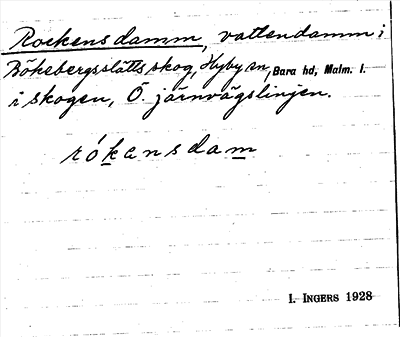 Rockens damm, vattendamm i
Bökebergsslätts skog, Hyby sn, Bara hd, Malm. l.
i skogen, Ö. järnvägslinjen.
rókansdam
I. INGERS 1928